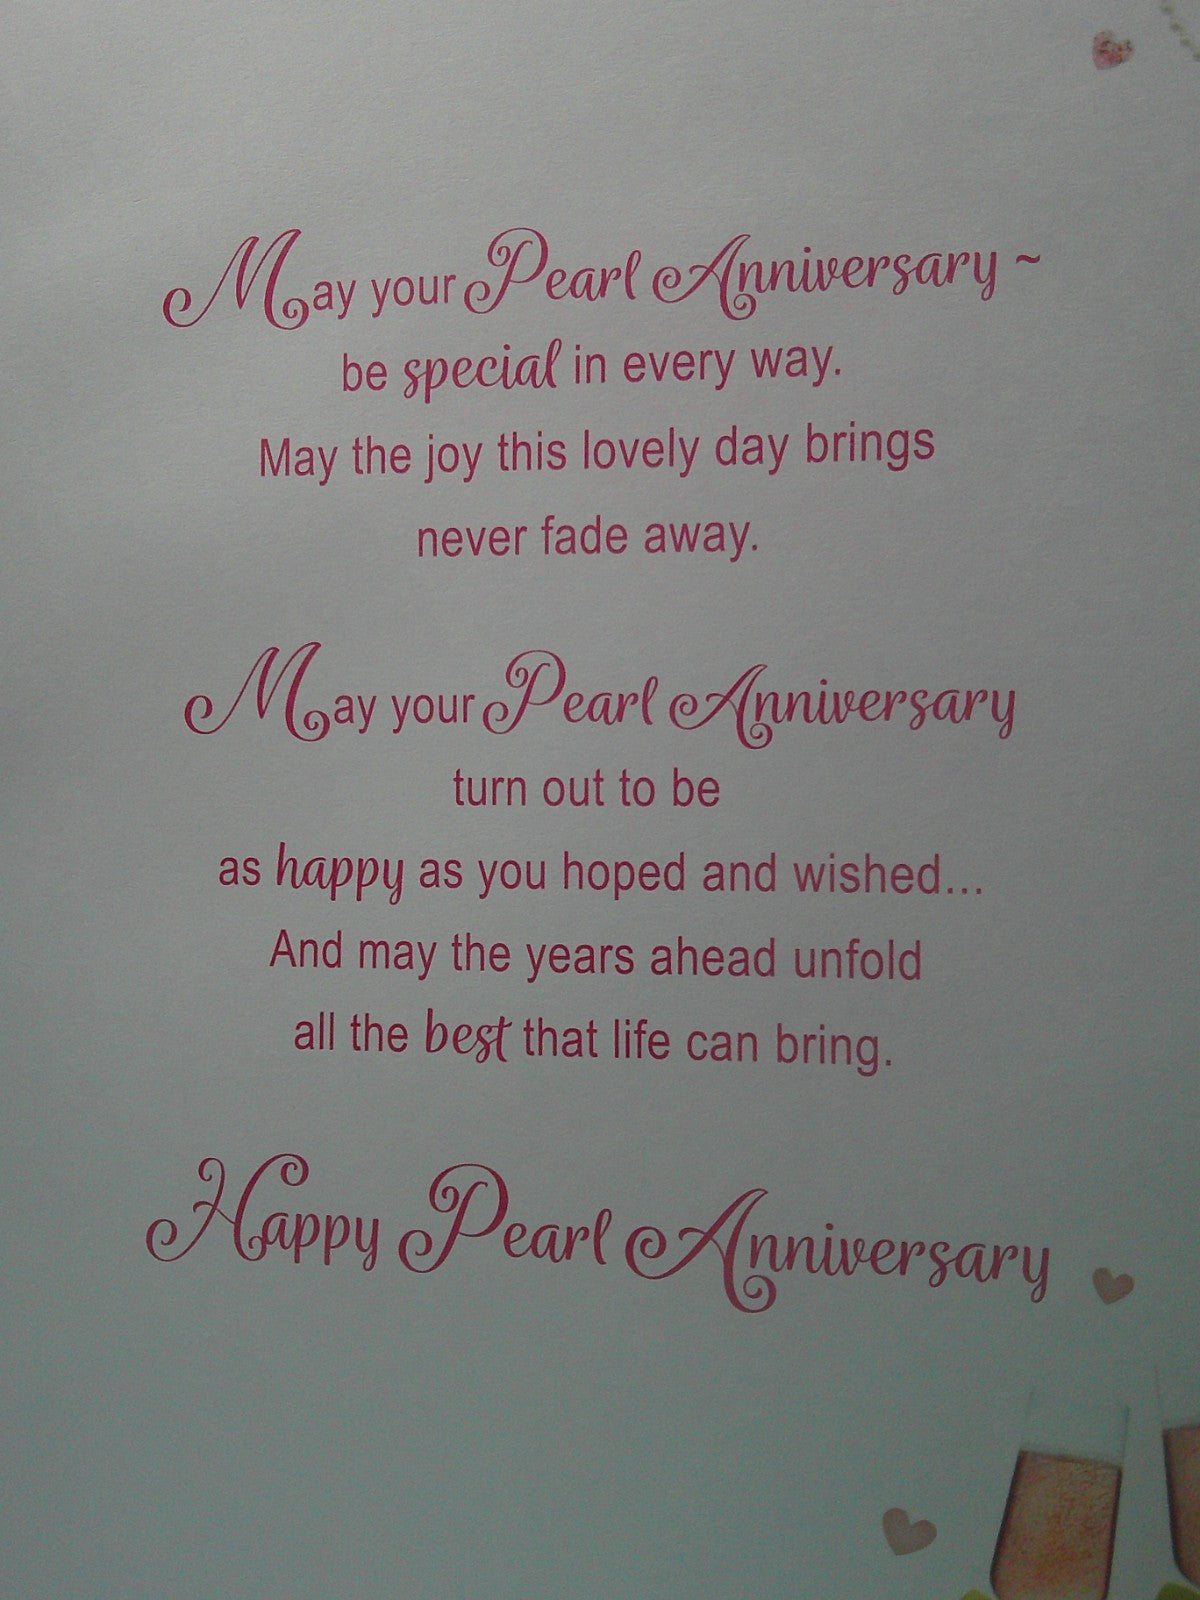 May your Pearl Anniversary ~
be special in every way.
May the joy this lovely day brings
never fade away.
May your Pearl Anniversary
turn out to be
as happy as you hoped and wished...
And may the years ahead unfold
all the best that life can bring.
Happy Pearl Anniversary